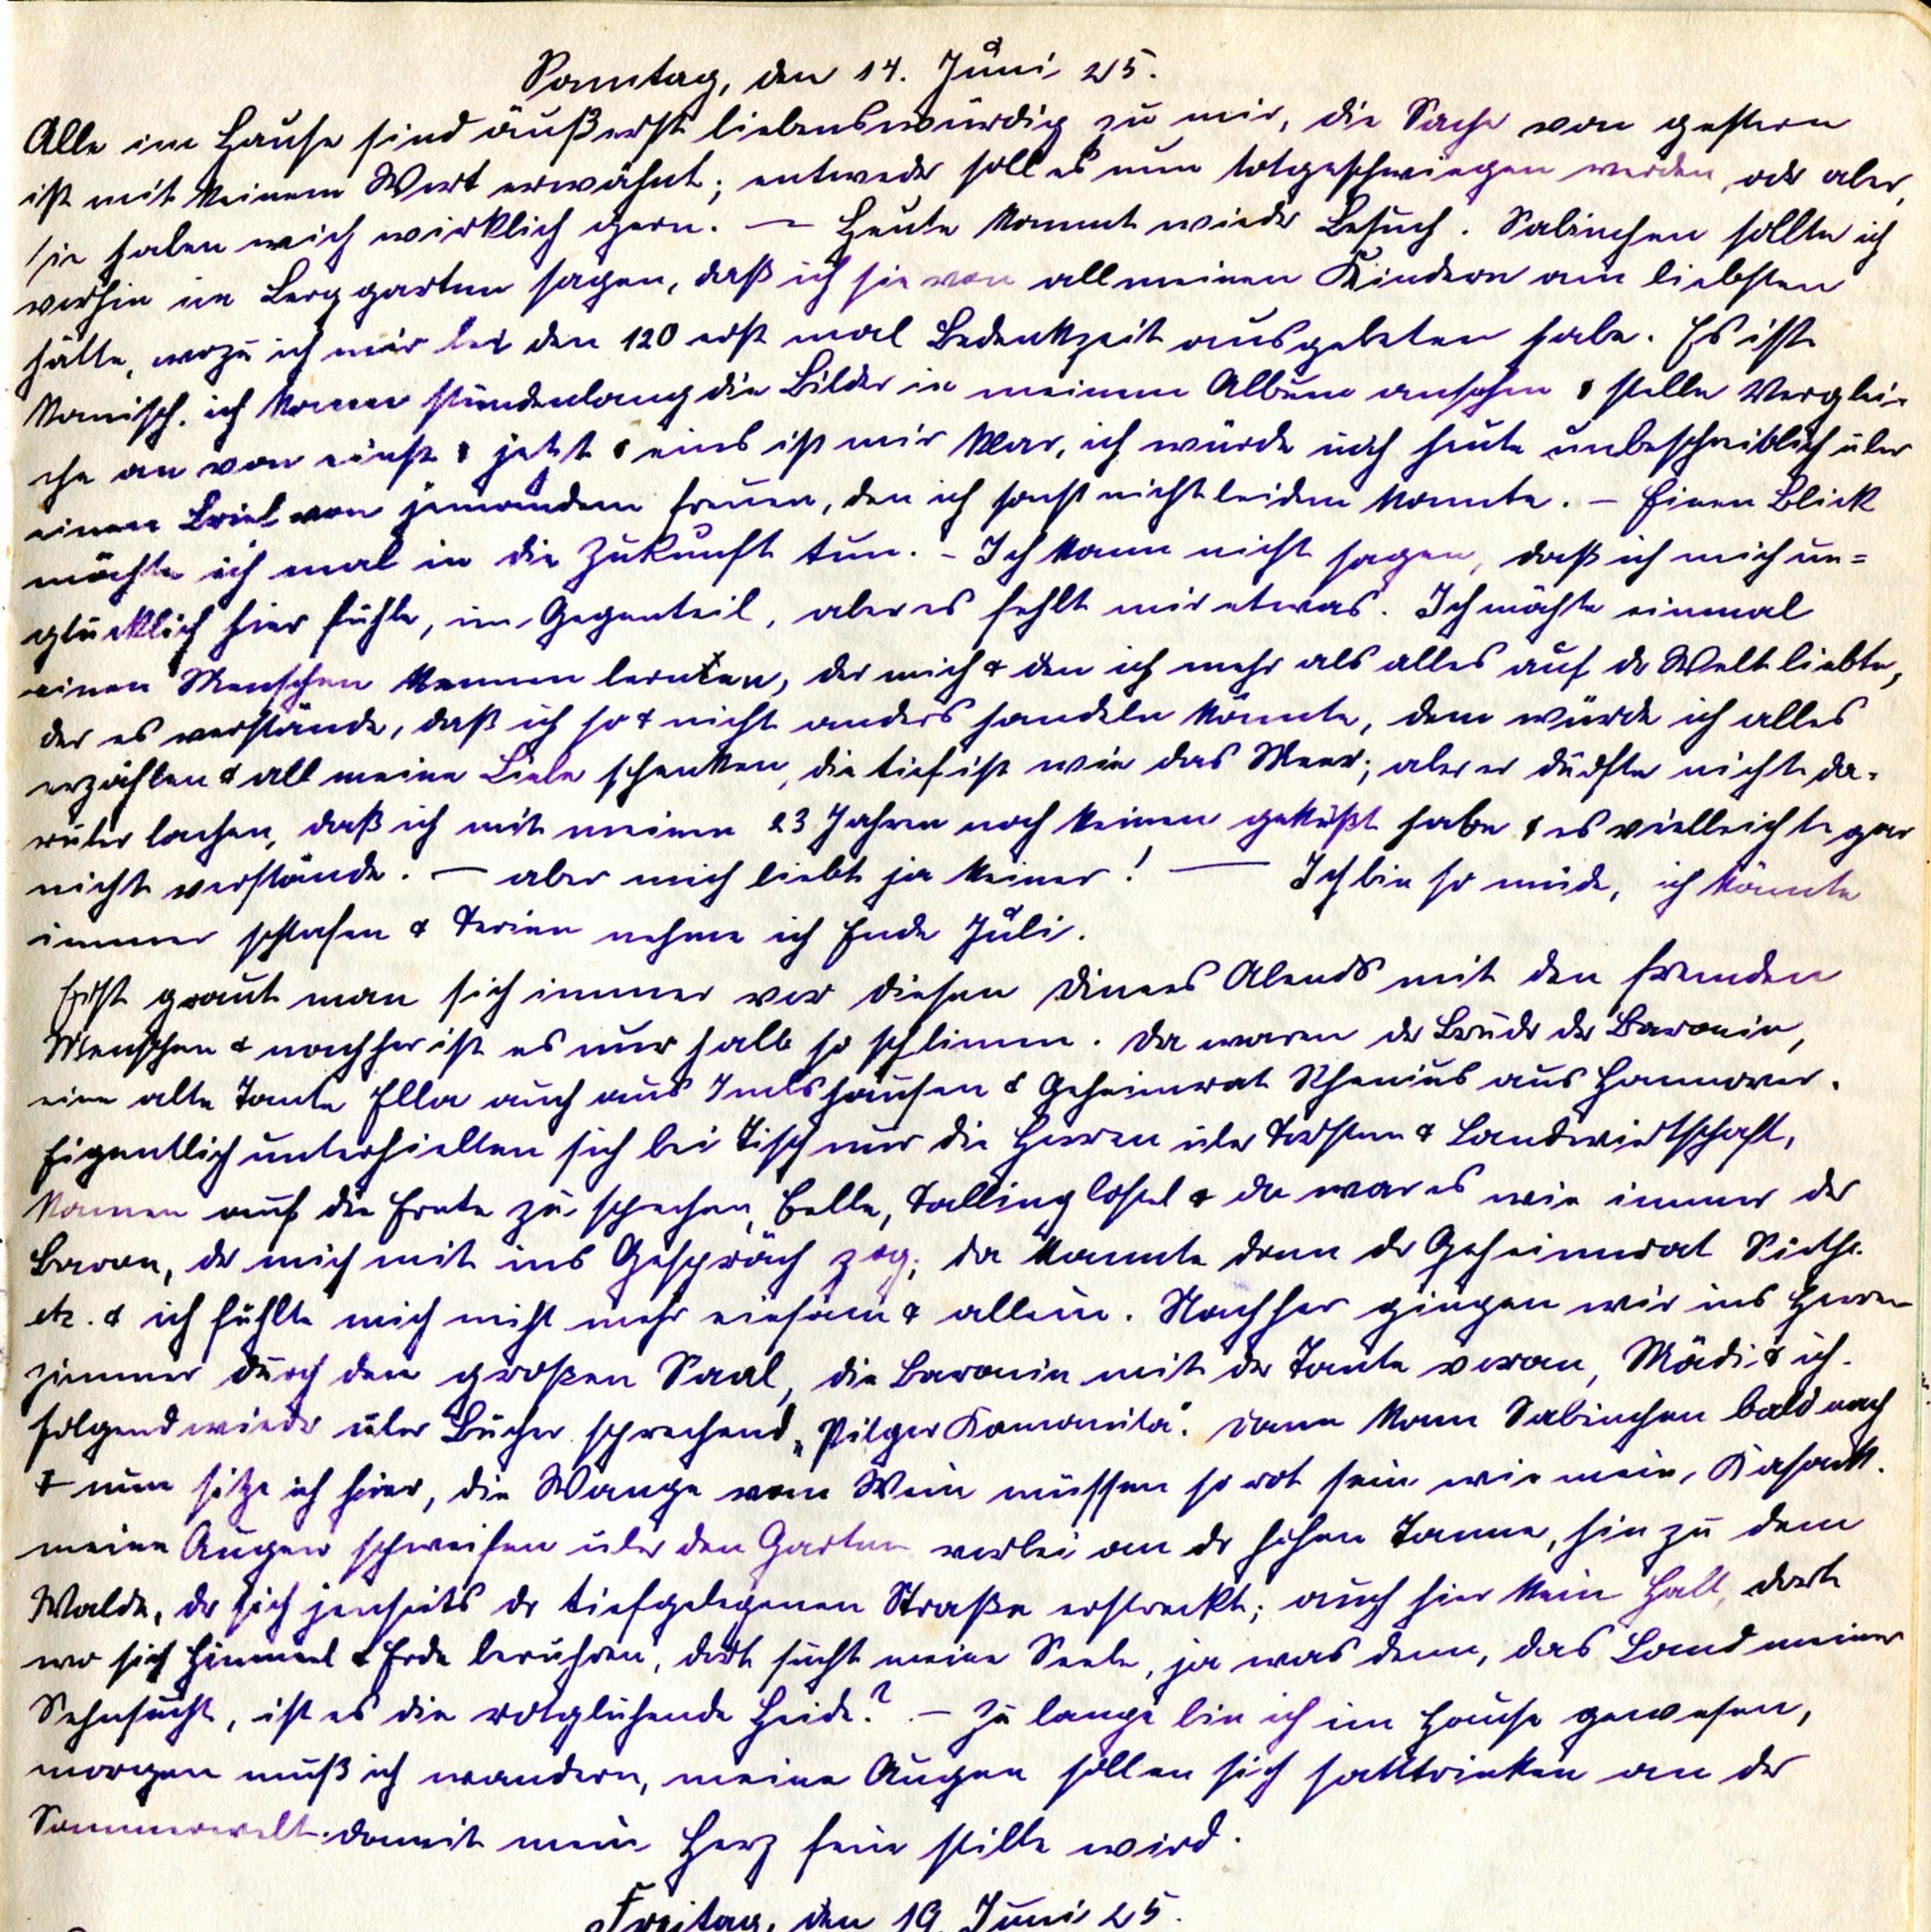 Sonntag, den 14. Juni 25.
Alle im Hause sind äußerst liebenswürdig zu mir, die Sache von gestern
ist mit keinem Wort erwähnt; entweder soll es nun totgeschwiegen werden, oder aber,
sie haben mich wirklich gern. — Heute kommt wieder Besuch. Sabinchen sollte ich
vorhin im Berggarten sagen, daß ich sie von all meinen Kindern am liebsten
hätte, wozu ich mir bei den 120 erst mal Bedenkzeit ausgebeten habe. Es ist
komisch, ich kann stundenlang die Bilder in meinem Album ansehen & stelle Verglei-
che an von einst & jetzt & eins ist mir klar, ich würde mich heute unbeschreiblich über
einen Brief von jemandem freuen, den ich sonst nicht leiden konnte. – Einen Blick
möchte ich mal in die Zukunft tun. – Ich kann nicht sagen, daß ich mich un=
glücklich hier fühle, im Gegenteil, aber es fehlt mir etwas. Ich möchte einmal
einen Menschen kennen lernen, der mich & den ich mehr als alles auf der Welt liebte,
der es verstände, daß ich so & nicht anders handeln könnte, dem würde ich alles
erzählen & all meine Liebe schenken, die tief ist wie das Meer; aber er dürfte nicht da-
rüber lachen, daß ich mit meinen 23 Jahren noch keinen geküßt habe & es vielleicht gar
nicht verstände. — aber mich liebt ja keiner! — Ich bin so müde, ich könnte
immer schlafen & Ferien nehme ich Ende Juli.
Erst graut man sich immer vor diesen Diners Abends mit den fremden
Menschen & nachher ist es nur halb so schlimm. Da waren der Bruder der Baronin,
eine alte Tante Ella auch aus Imbshausen & Geheimrat Rhenius aus Hannover.
Eigentlich unterhielten sich bei Tisch nur die Herren über Forsten & Landwirtschaft,
kamen auf die Ernte zu sprechen, Celle, Fallingbostel & da war es wie immer der
Baron, der mich mit ins Gespräch zog; da kannte denn der Geheimrat
etc. & ich fühlte mich nicht mehr einsam & allein. Nachher gingen wir ins Herren-
zimmer durch den großen Saal, die Baronin mit der Tante voran, Mädi & ich
folgend wieder über Bücher sprechend „Pilger Kamanita“. Dann kam Sabinchen bald nach
& nun sitze ich hier, die Wange vom Wein müssen so rot sein wie mein Kasack.
meine Augen schweifen über den Garten vorbei an der hohen Tanne, hin zu dem
Walde, der sich jenseits der tiefgelegenen Straße erstreckt; auch hier kein Halt, dort
wo sich Himmel & Erde berühren, dort sucht meine Seele, ja was denn, das Land meiner
Sehnsucht, ist es die rotglühende Heide? – Zu lange bin ich im Hause gewesen,
morgen muß ich wandern, meine Augen sollen sich satttrinken an der
Sommerwelt damit mein Herz fein stille wird.
Freitag, den 19. Juni 25.